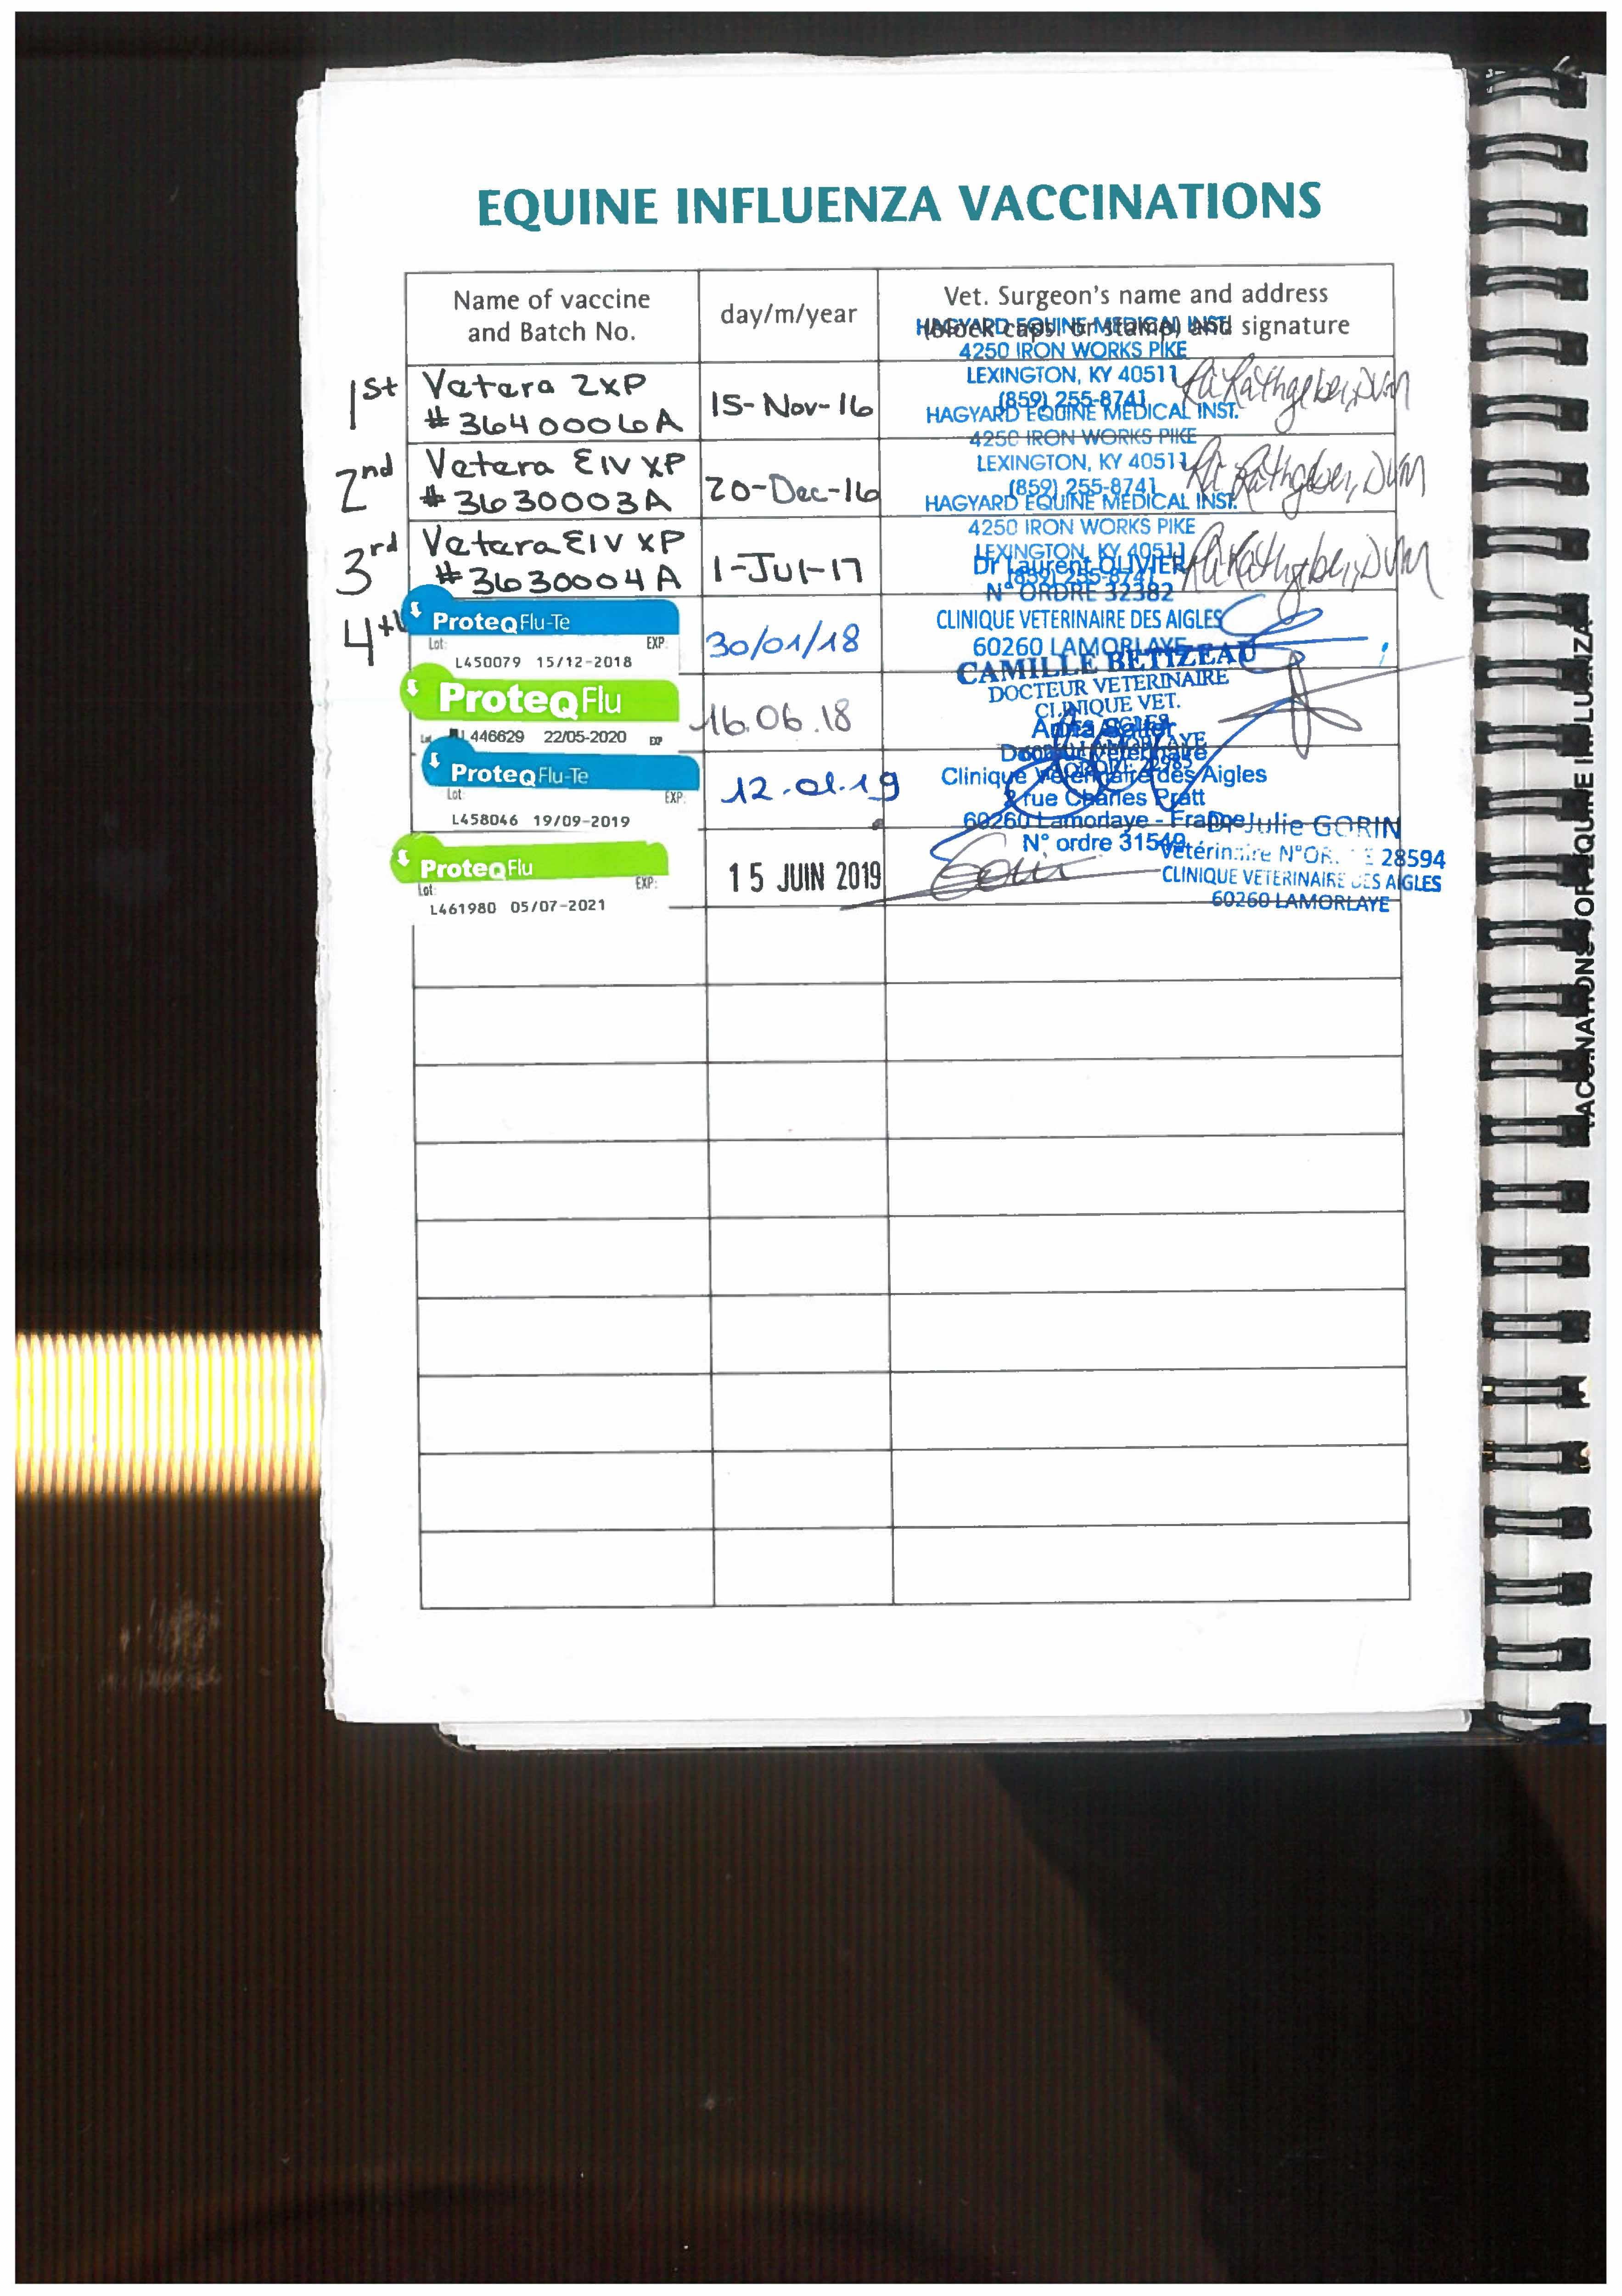 EQUINE INFLUENZA VACCINATIONS
Name of vaccine
and Batch No.
day/m/year
Vet. Surgeon's name and address
(block caps. or stamp) and signature
HAGYARD EQUINE MEDICAL INST.
4250 IRON WORKS PIKE
LEXINGTON, KY 40511
(859) 255-8741
1st
Vetera 2XP
#36400006A
15-Nov-16
HAGYARD EQUINE MEDICAL INST.
4250 IRON WORKS PIKE
LEXINGTON, KY 40511
(859) 255-8741
2nd
Vetera EIV XP
#3630003A
20-Dec-16
HAGYARD EQUINE MEDICAL INST.
4250 IRON WORKS PIKE
LEXINGTON, KY 40511
(859) 255-8741
3rd
Vetera EIV XP
#3630004A
1-Jul-17
4th
ProteqFlu-Te
Lot: EXP:
L450079 15/12-2018
30/01/18
Dr Laurent OLIVIER
N° ORDRE 32382
CLINIQUE VETERINAIRE DES AIGLES
60260 LAMORLAYE
ProteqFlu
L446629 22/05-2020 EXP
16.06.18
CAMILLE BETIZEAU
DOCTEUR VETERINAIRE
CLINIQUE VET.
ProteqFlu-Te
Lot: EXP:
L458046 19/09-2019
12.01.19
Docteur Vétérinaire
Clinique Vétérinaire des Aigles
rue Charles Pratt
60260 Lamorlaye - France
N° ordre 31549
ProteqFlu
Lot: EXP:
L461980 05/07-2021
15 JUIN 2019
Dr Julie GORIN
Vétérinaire N°OR. 28594
CLINIQUE VETERINAIRE DES AIGLES
60260 LAMORLAYE
VACCINATIONS FOR EQUINE INFLUENZA